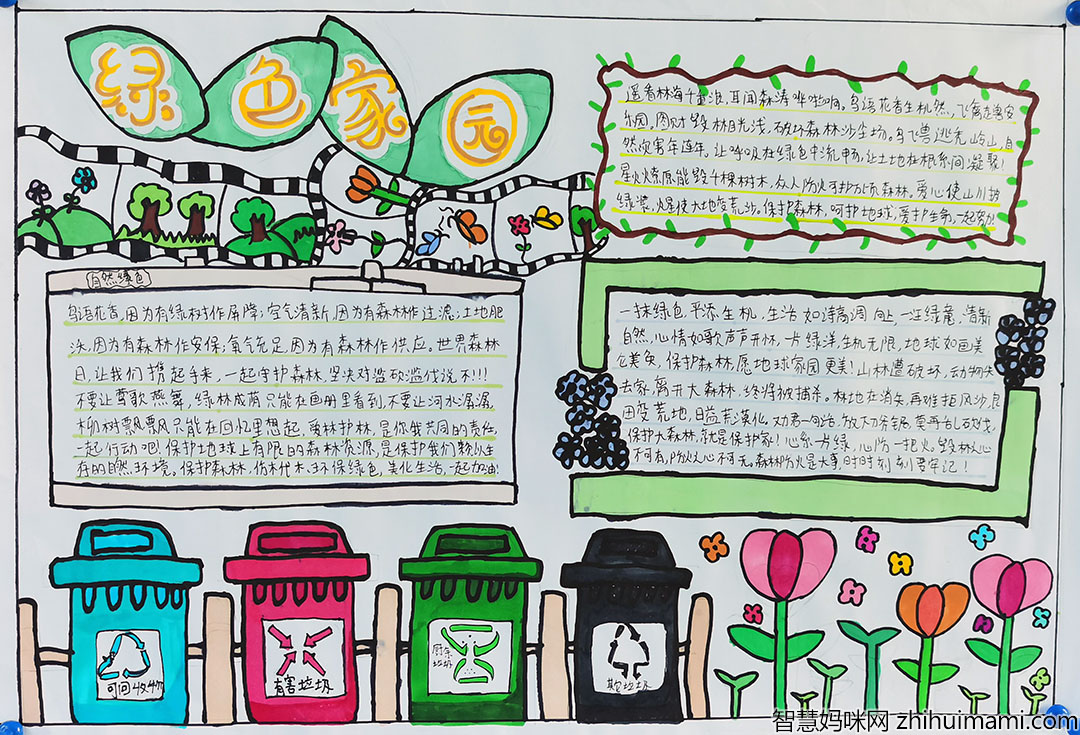 绿色家园
遥看林海千重浪,耳闻森涛哗啦响,鸟语花香生机然,飞禽走兽安
乐园,图财毁林目光浅,破坏森林沙尘扬。鸟飞兽逃秃岭山,自
然灾害年连年。让呼吸在绿色中流畅,让土地在根系间凝聚!
星火燎原能毁千棵树木,众人防火可护万顷森林,爱心使山川披
绿装,火星使大地变荒沙。保护森林,呵护地球,爱护生命,一起努力
自然绿色
鸟语花香,因为有绿树作屏障;空气清新,因为有森林作过滤;土地肥
沃,因为有森林作安保;氧气充足,因为有森林作供应。世界森林
日,让我们携起手来,一起守护森林,坚决对盗砍滥伐说不!!!
不要让莺歌燕舞,绿林成荫只能在画册里看到,不要让河水潺潺,
柳树飘飘只能在回忆里想起,育林护林,是你我共同的责任,
一起行动吧!保护地球上有限的森林资源,是保护我们赖以生
存的自然环境。保护森林,伤林代木,环保绿色,美化生活,一起加油!
一抹绿色,平添生机,生活如诗高调向上,一汪绿意,清新
自然,心情如歌声声开怀,一片绿洋,生机无限,地球如画美
仑美奂,保护森林,愿地球家园更美!山林遭破坏,动物失
去家,离开大森林,终得被捕杀。林地在消失,再难拒风沙,良
田变荒地,日益荒漠化。劝君一句话,放大斧锯,莫再乱砍伐,
保护大森林,就是保护家!心系一片绿,心防一把火。毁林之心
不可有,防火之心不可无。森林防火是大事,时时刻刻要牢记!
可回收物
有害垃圾
厨余
垃圾
其它垃圾
智慧妈咪网 zhihuimami.com